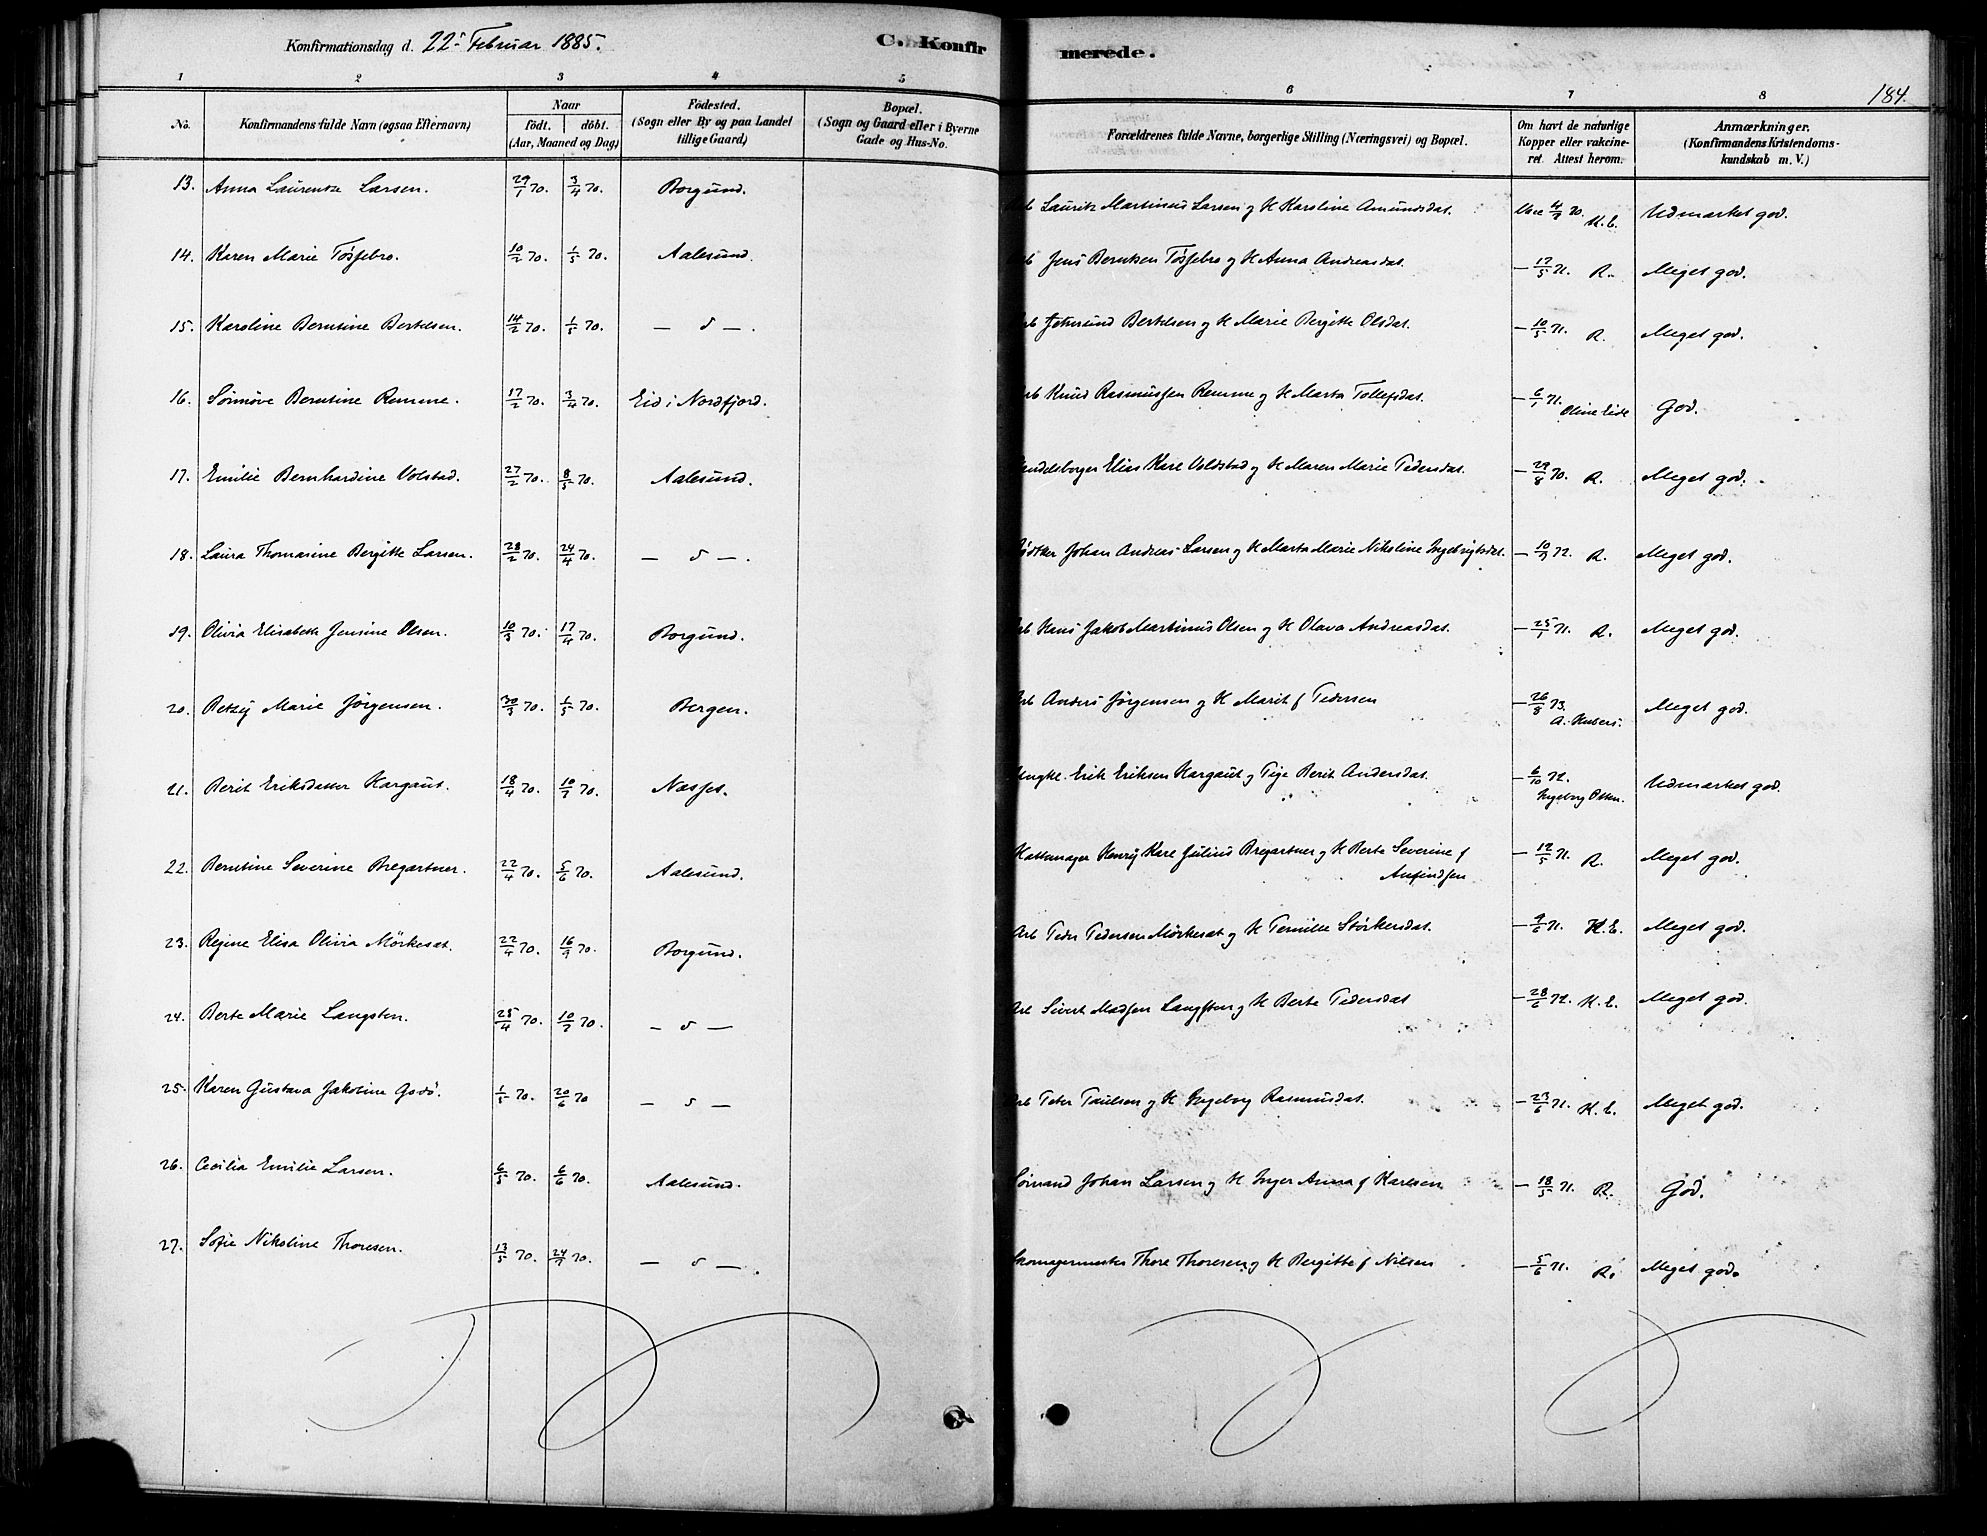 Konfirmationsdag d. 22. Februar 1885.
C. Konfirmerede.
184.
1 2 3 4 5 6 7 8
No.
Konfirmandens fulde Navn (ogsaa Efternavn)
Naar
födt. döbt.
(Aar, Maaned og Dag)
Födested.
(Sogn eller By og paa Landet
tillige Gaard)
Bopæl.
(Sogn og Gaard eller i Byerne
Gade og Hus-No.
Forældrenes fulde Navne, borgerlige Stilling (Næringsvei) og Bopæl.
Om havt de naturlige
Kopper eller vakcine-
ret. Attest herom.
Anmærkninger.
(Konfirmandens Kristendoms-
kundskab m. V.)
13. Anna Laurentze Larsen. 29/1 70. 3/4 70. Borgund. Lauritz Martinus Larsen og H Karoline Amundsdat. 4/7 70. K.E. Udmærket god.
14. Karen Marie Tössebro. 10/2 70. 1/5 70. Aalesund. Jens Berntsen Tössebro og H Anna Andreasdat. — 17/5 71. R. Meget god.
15. Karoline Berntine Bertelsen. 14/2 70. 1/5 70. — d —. Bertelsen og H Marie Bergitte Olsdat. — 10/5 71. R. Meget god.
16. Sönnöve Berntine Remme. 17/2 70. 3/4 70. Eid i Nordfjord. Knud Rasmussen Remme og H Marta Tollefsdat. — 6/1 71. Oline Eide God.
17. Emilie Bernhardine Volstad. 27/2 70. 8/5 70. Aalesund. Elias Kare Voldstad og H Maren Marie Pedersdat. — 29/8 70. R. Meget god.
18. Laura Thomasine Bergitte Larsen. 28/2 70. 24/4 70. — d —. Johan Andreas Larsen og H Marta Marie Nikoline Ingebrigtsdat. — 10/7 72. R. Meget god.
19. Olivia Elisabeth Jensine Olsen. 10/3 70. 17/4 70. Borgund. Hans Jakob Martinus Olsen og H Olava Andreasdat. — 25/1 71. R. Meget god.
20. Betzy Marie Jörgensen. 30/3 70. 1/5 70. Bergen. Anders Jörgensen og H Marit f Pedersen — 26/8 73. Meget god.
21. Berit Eriksdatter Kargaut. 18/4 70. 10/7 70. Næsset. Ungkl. Erik Eriksen Kargaut og Pige Berit Andersdat. — 6/10 72. Ingeborg Otten. Udmærket god.
22. Berntine Severine Bregartner. 22/4 70. 5/6 70. Aalesund. Hattemager Henry Karl Julius Bregartner og H Berte Severine f
Anfindsen — 12/5 71. R. Meget god.
23. Regine Elisa Olivia Mörkesæt. 22/4 70. 16/7 70. Borgund. Arb Peder Pedersen Mörkesæt og H Pernille Störkersdat. — 9/6 71. K.E. Meget god.
24. Berte Marie Langsten. 25/4 70. 10/7 70. — d — Arb Sivert Madsen Langsten og H Berte Pedersdat — 28/6 72. K.E. Meget god.
25. Karen Gustava Jakobine Godö. 1/5 70. 20/6 70 — d — Peter Paulsen og H Ingeborg Rasmusdat. — 23/6 71. K.E. Meget god.
26. Cecilia Emilie Larsen. 6/5 70. 6/6 70. Aalesund. Sömand Johan Larsen og H Inger Anna f Karlsen — 18/5 71. R. God.
27. Sofie Nikoline Thoresen. 13/5 70. 24/7 70. — d —. Skomagermester Thore Thoresen og H Bergitte f Nilsen — 5/6 71. R. Meget god.